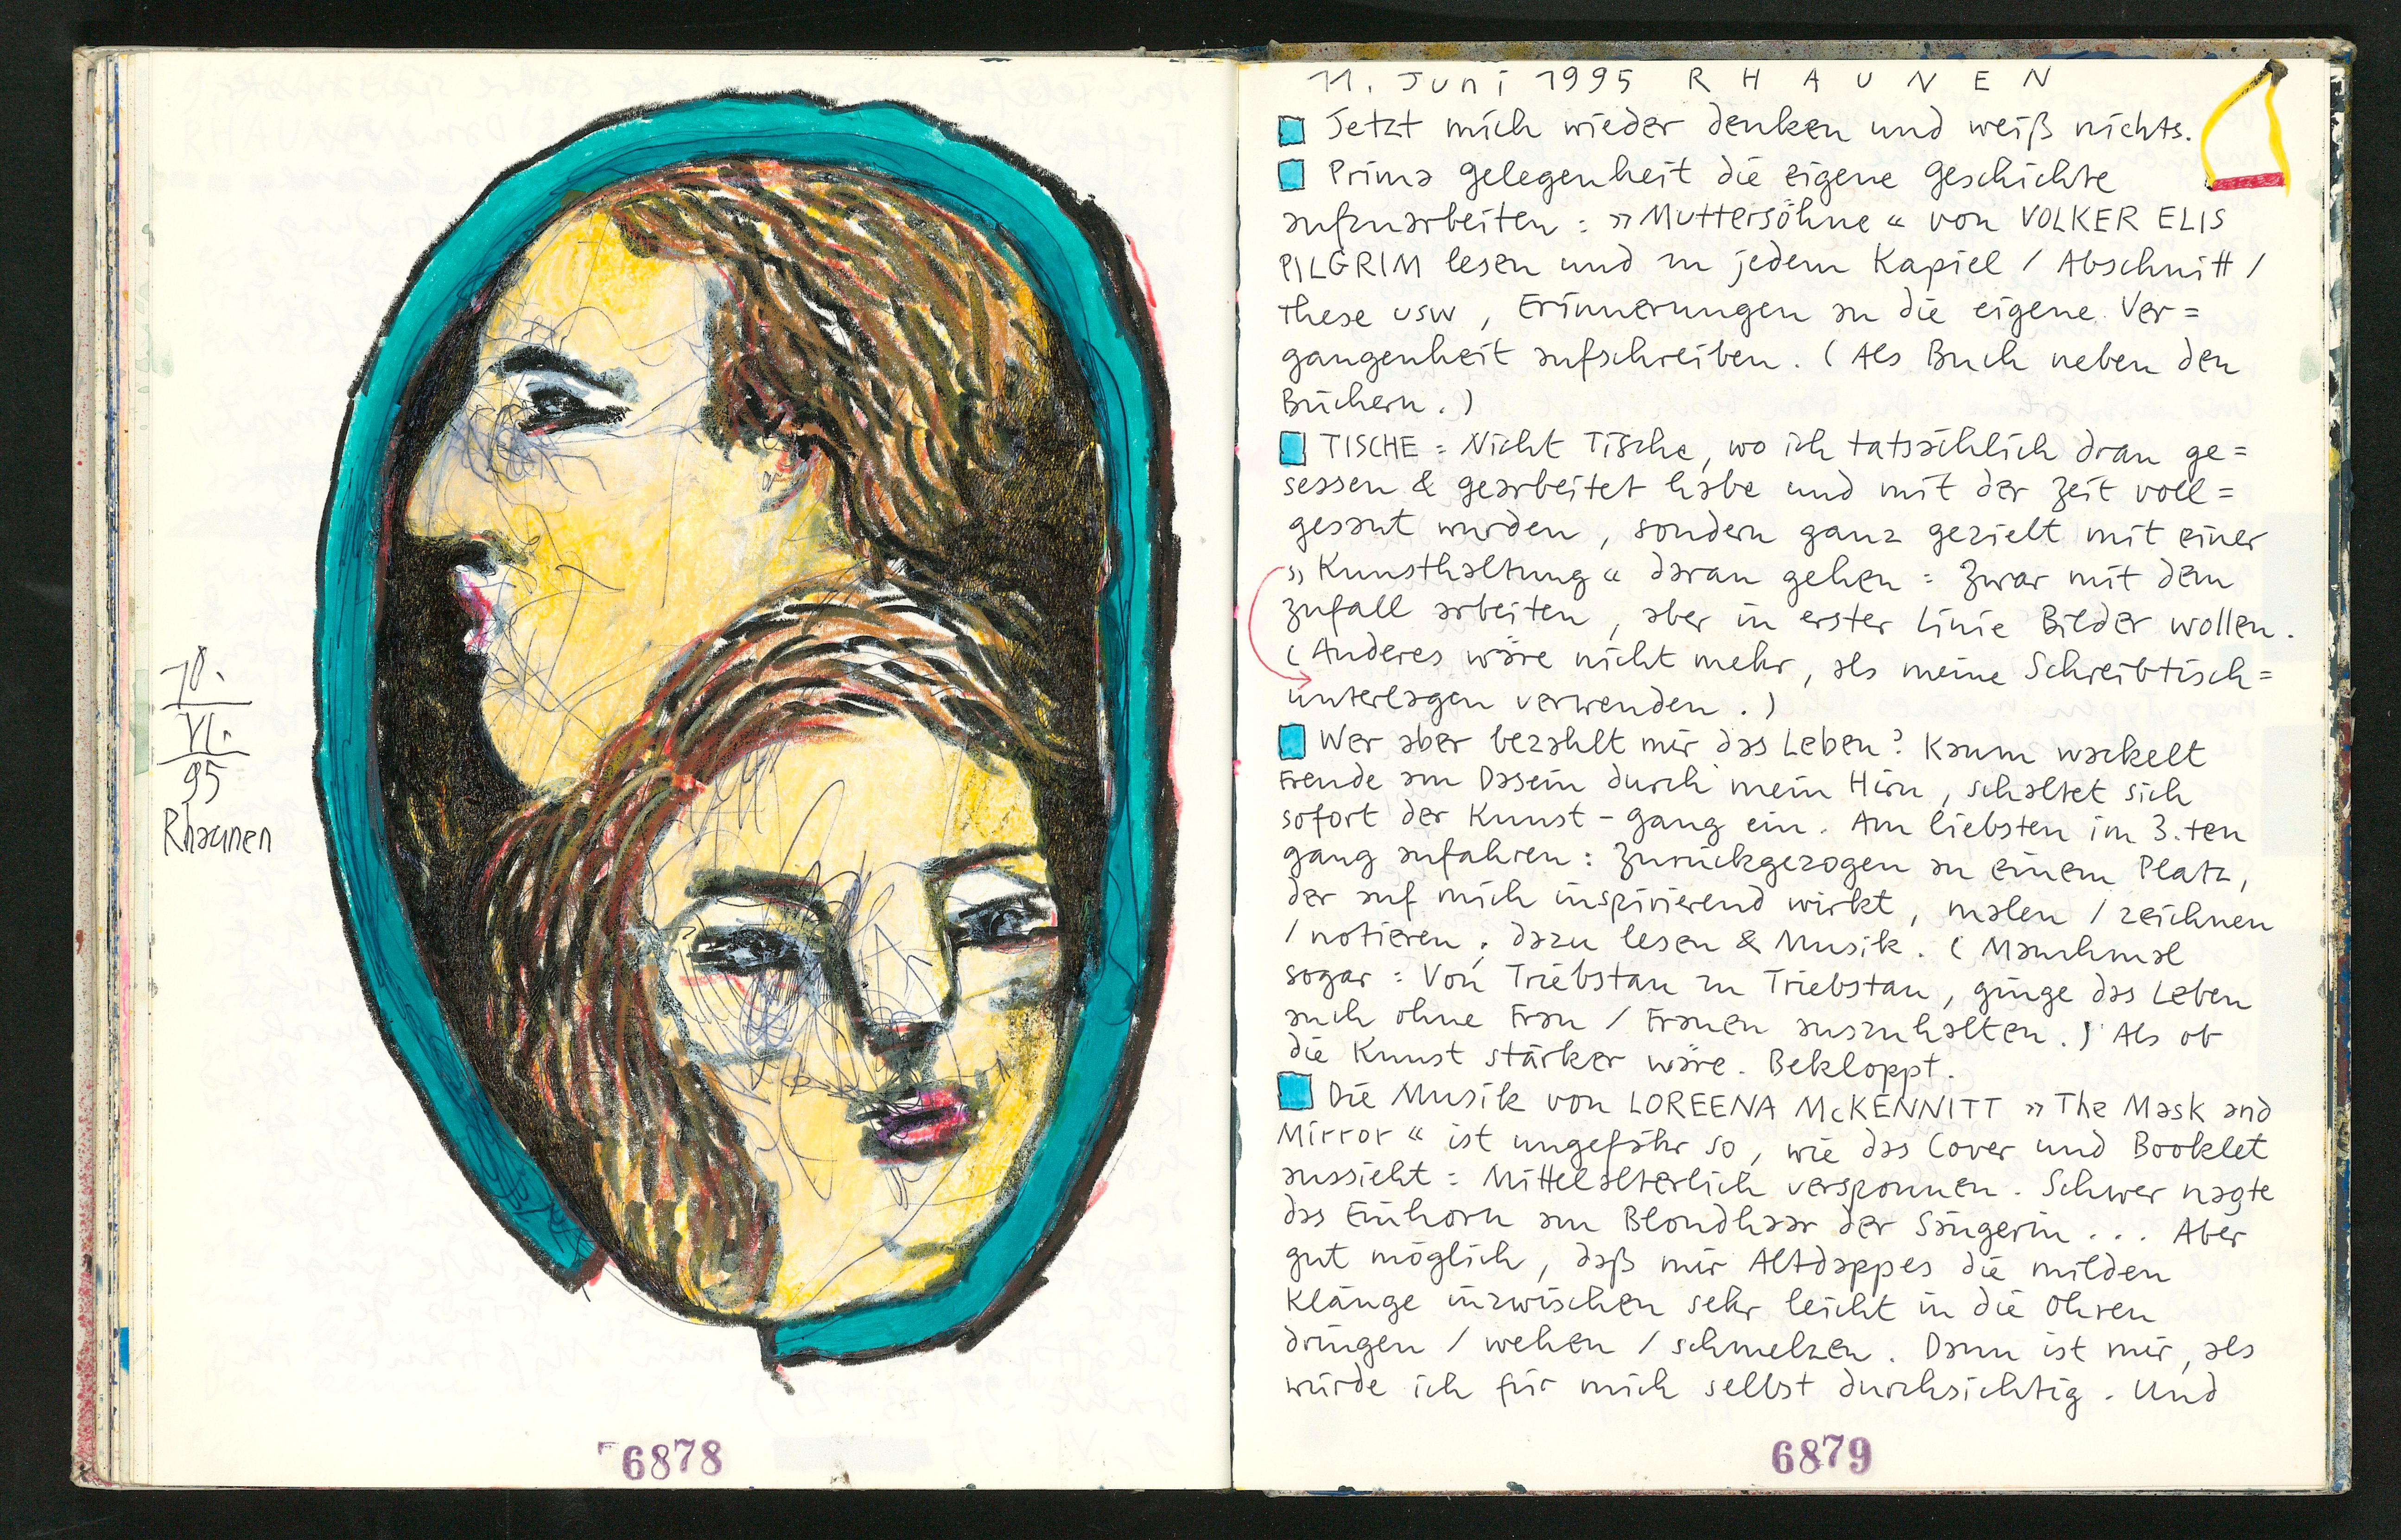 10.
VI.
95
Rhaunen
6878
11. Juni 1995 RHAUNEN
Jetzt mich wieder denken und weiß nichts.
Prima Gelegenheit die eigene Geschichte
aufzuarbeiten: »Muttersöhne« von VOLKER ELIS
PILGRIM lesen und zu jedem Kapiel / Abschnitt /
these usw, Erinnerungen an die eigene Ver=
gangenheit aufschreiben. (Als Buch neben den
Büchern.)
TISCHE: Nicht Tische, wo ich tatsächlich dran ge=
sessen & gearbeitet habe und mit der Zeit voll=
gesaut wurden, sondern ganz gezielt mit einer
»Kunsthaltung« daran gehen: Zwar mit dem
Zufall arbeiten, aber in erster Linie Bilder wollen.
(Anderes wäre nicht mehr, als meine Schreibtisch=
unterlagen verwenden.)
Wer aber bezahlt mir das Leben? Kaum wackelt
Freude am Dasein durch mein Hirn, schaltet sich
sofort der Kunst-gang ein. Am liebsten im 3.ten
gang anfahren: Zurückgezogen an einem Platz,
der auf mich inspirierend wirkt, malen / zeichnen
/ notieren, dazu lesen & Musik. (Manchmal
sogar: Von Triebstau zu Triebstau, ginge das Leben
auch ohne Frau / Frauen auszuhalten.) Als ob
die Kunst stärker wäre. Bekloppt.
Die Musik von LOREENA McKENNITT »The Mask and
Mirror« ist ungefähr so, wie das Cover und Booklet
aussieht: Mittelalterlich versponnen. Schwer nagte
das Einhorn am Blondhaar der Sängerin... Aber
gut möglich, daß mir Altdappes die milden
Klänge inzwischen sehr leicht in die Ohren
dringen / wehen / schmelzen. Dann ist mir, als
würde ich für mich selbst durchsichtig. Und
6879